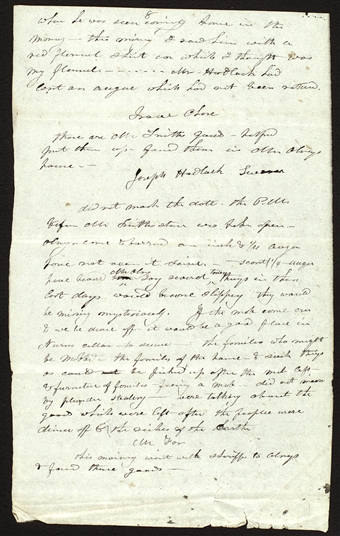 when he was seen coming home in the
morning — this morning I saw him with a
red flannel shirt on which I thought was
my flannel — Mr Hadlock had
lost an augur which had not been returned.
Isaac Chase
those are Mr Smiths goods — helped
put them up — found them in Mr Olneys
house —
Joseph Hadlock Sworn
did not mark the date the P.M.
before Mr Smiths store was broke open —
Olney come & borrowed an inch & 1/4 augur
have not seen it since.
have heard Mr Olney say several things in
last days would become slippery they would
be missing mysteriously. If the mob come on
& we be drove off it would be a good place in
cellar to secure — the families who might
be — the families of the house & such things
as could be picked up after the mob left
& furniture of families fearing a mob did not mean
by plunder stealing — were talking about the
goods which were left after the people were
driven off & the riches of the earth
Mr Fox
this morning went with sheriff to Olneys
& found these goods —